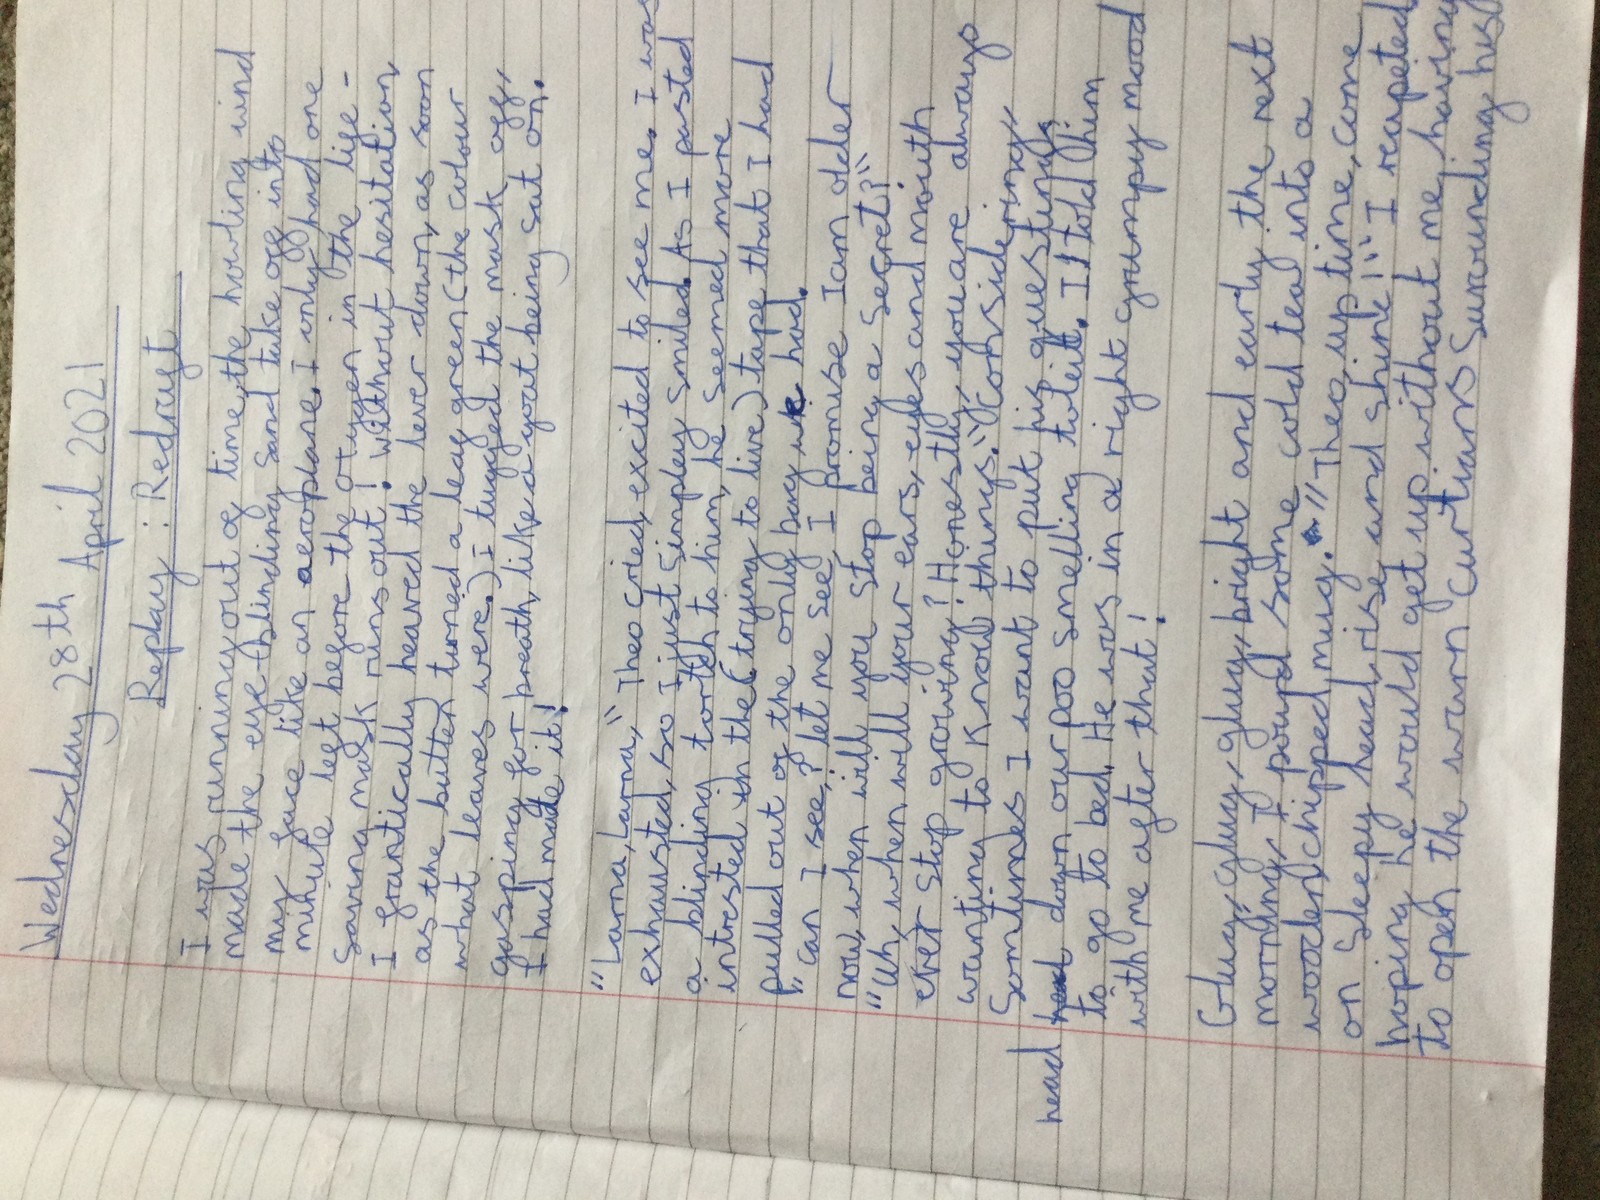 Wednesday 28th April 2021
Replay : Redraft
I was running out of time, the howling wind
made the eye-blinding sand take off into
my face like an aeroplane. I only had one
minute left before the oxygen in the life-
saving mask runs out! Without hesitation,
I frantically heaved the lever down, as soon
as the butten turned a leaf green (the colour
what leaves were.) I tugged the mask off,
gasping for breath, like a goat being sat on.
I had made it!
"Larna, Larna," Theo cried, excited to see me. I was
exhausted, so I just simpley smiled. As I pasted
a blinding torth to him, he semed more
intrested in the (trying to live) tape that I had
pulled out of the only bag we had.
"Can I see, let me see, I promise I am older
now, when will you stop being a secret?"
"Uh, when will your ears, eyes and mouth
ever stop growing? Honestly, you are always
wanting to know things." Considering,
Somtimes I want to put his questiny
head down our poo smelling toleit. I told him
to go to bed. He was in a right grumpy mood
with me after that!
Glug, glug, glug, bright and early the next
morning, I pourd some cold tea into a
wooden, chipped, mug. "Theo, up time, come
on sleepy head, rise and shine!" I reapeted
hoping he would get up without me, having
to open the worn curtians surounding his